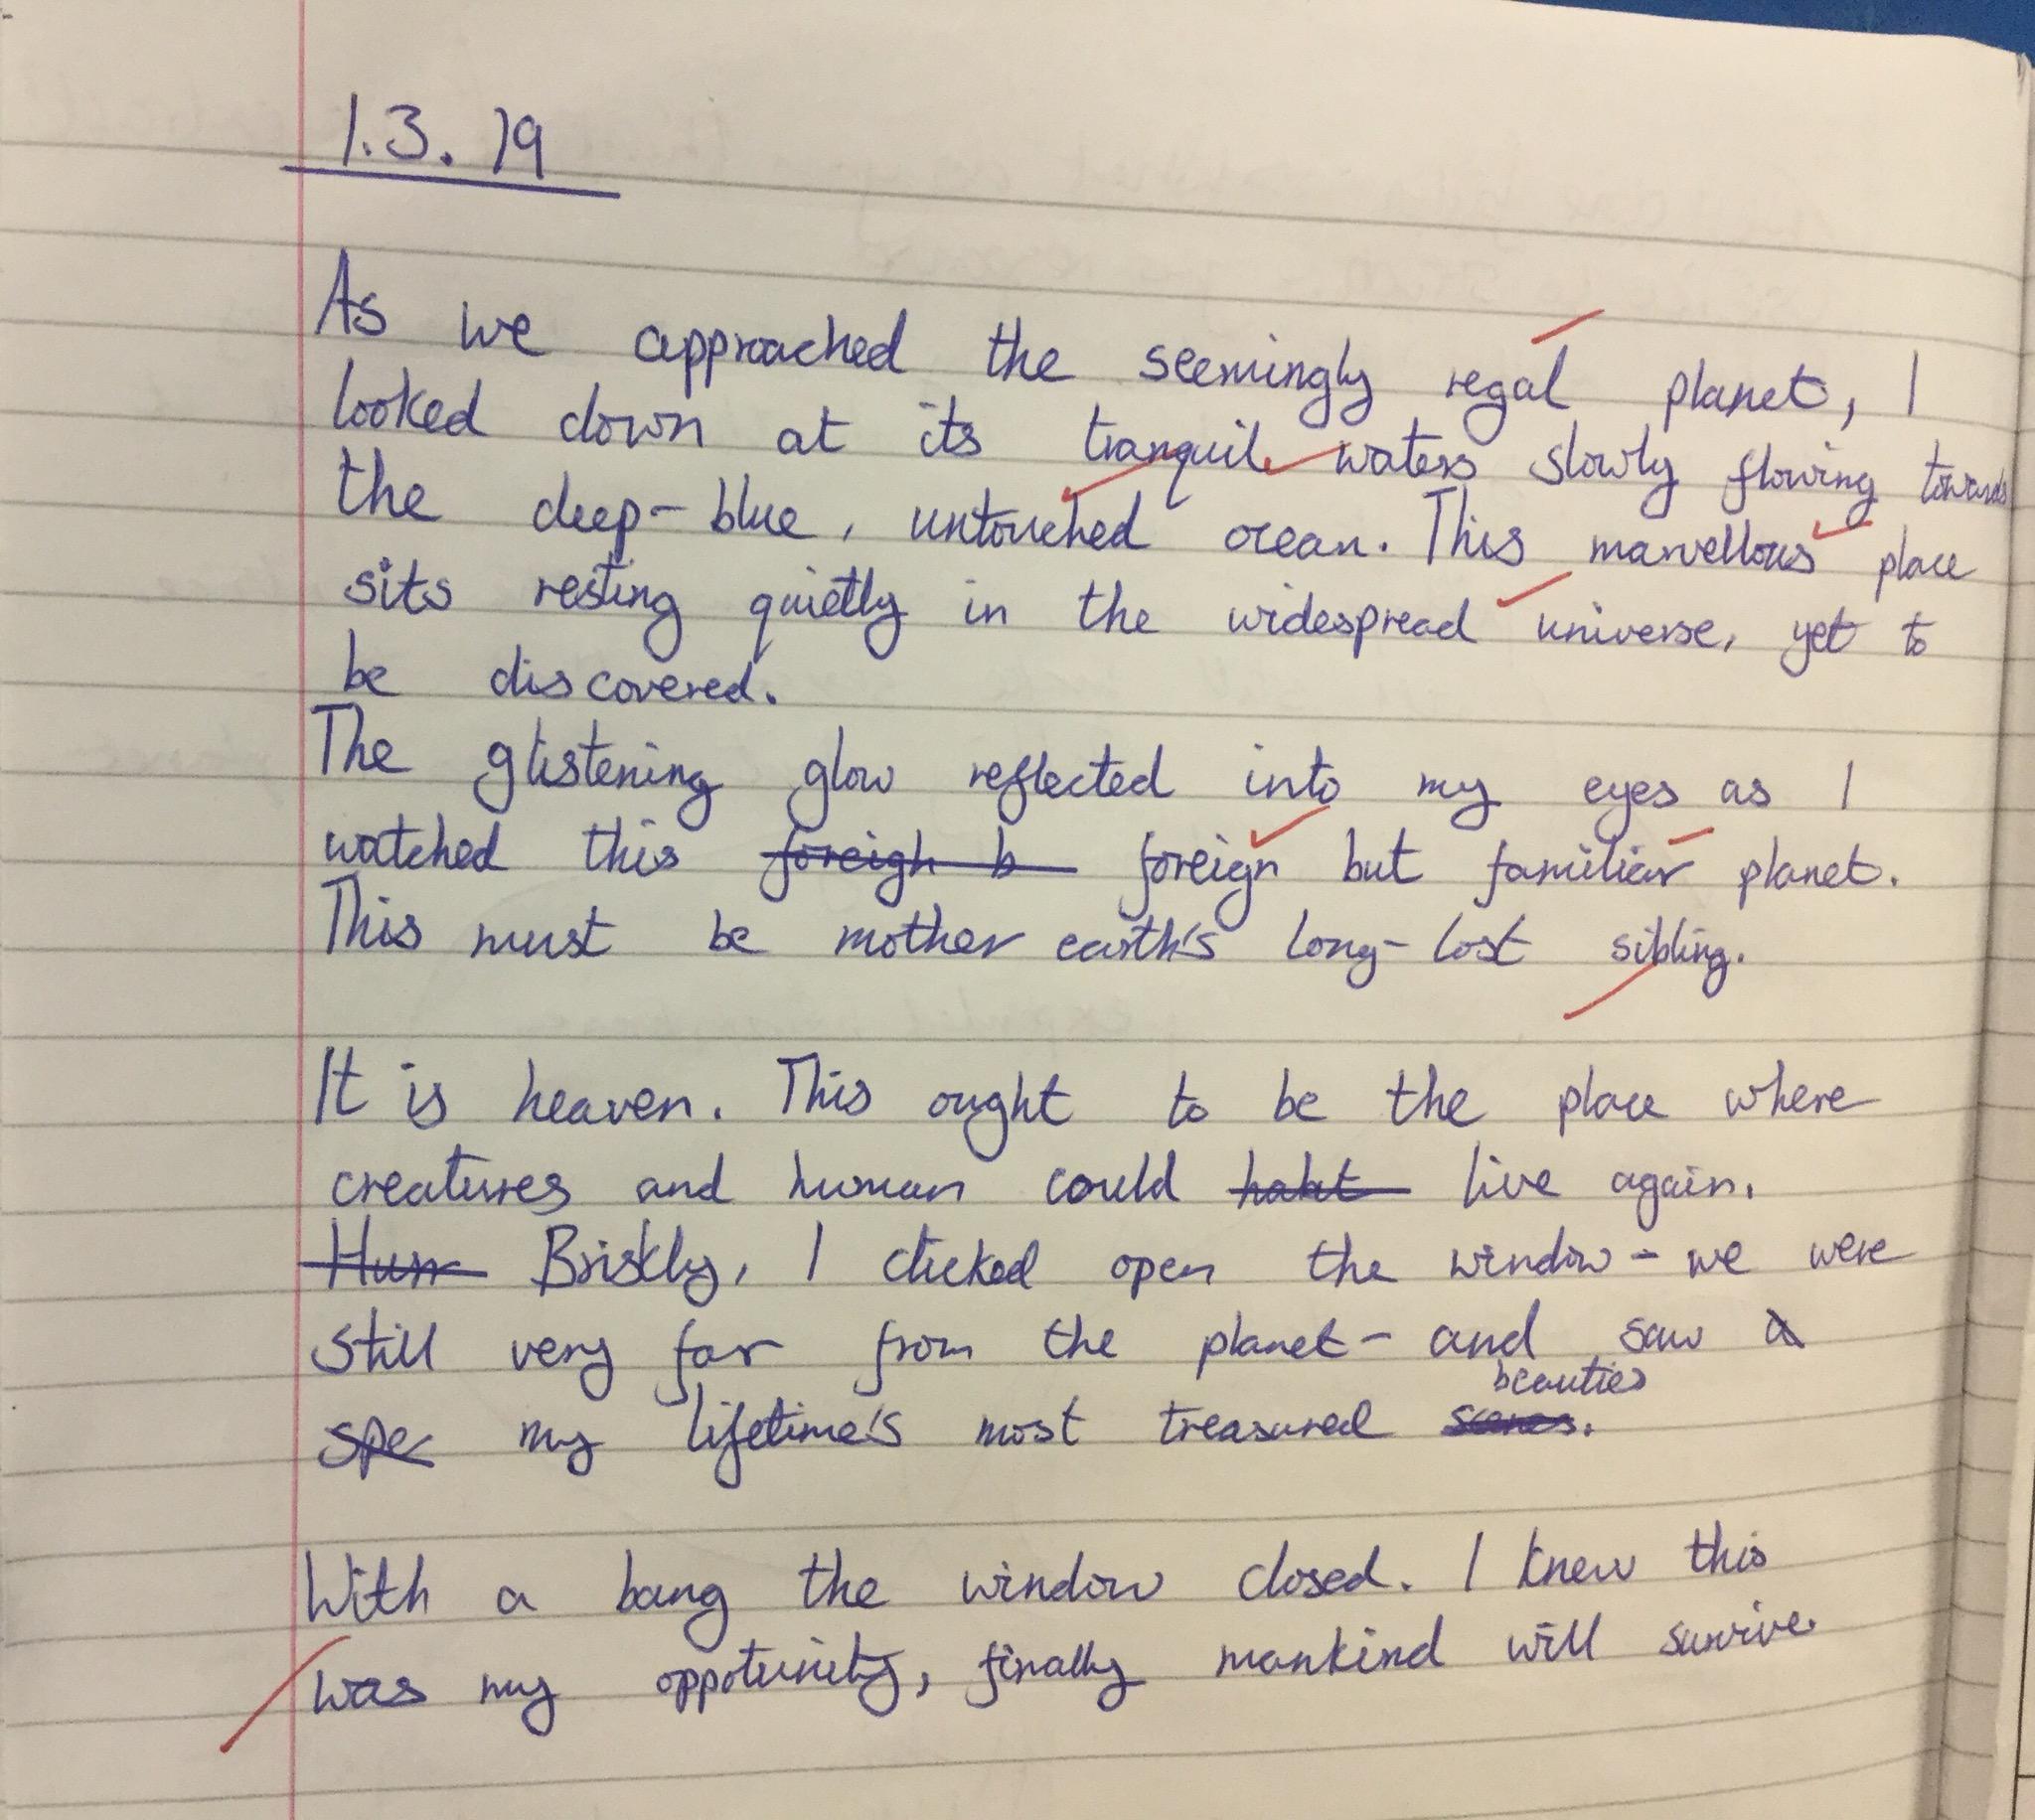 1.3.19
As we approached the seemingly regal planet, I
looked down at its tranquil waters slowly flowing towards
the deep-blue, untouched ocean. This marvellous place
sits resting quietly in the widespread universe, yet to
be discovered.
The glistening glow reflected into my eyes as I
watched this foreigh b foreign but familiar planet.
This must be mother earth's long-lost sibling.
It is heaven. This ought to be the place where
creatures and human could live again.
Hum Briskly, I clicked open the window - we were
still very far from the planet - and saw a
beauties
spe my lifetime's most treasured scenes.
With a bang the window closed. I knew this
was my oppotunity, finally mankind will survive.